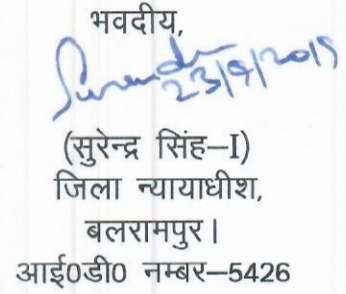 भवदीय,
Surendra
23/9/2019
(सुरेन्द्र सिंह–I)
जिला न्यायाधीश,
बलरामपुर।
आई०डी० नम्बर–5426